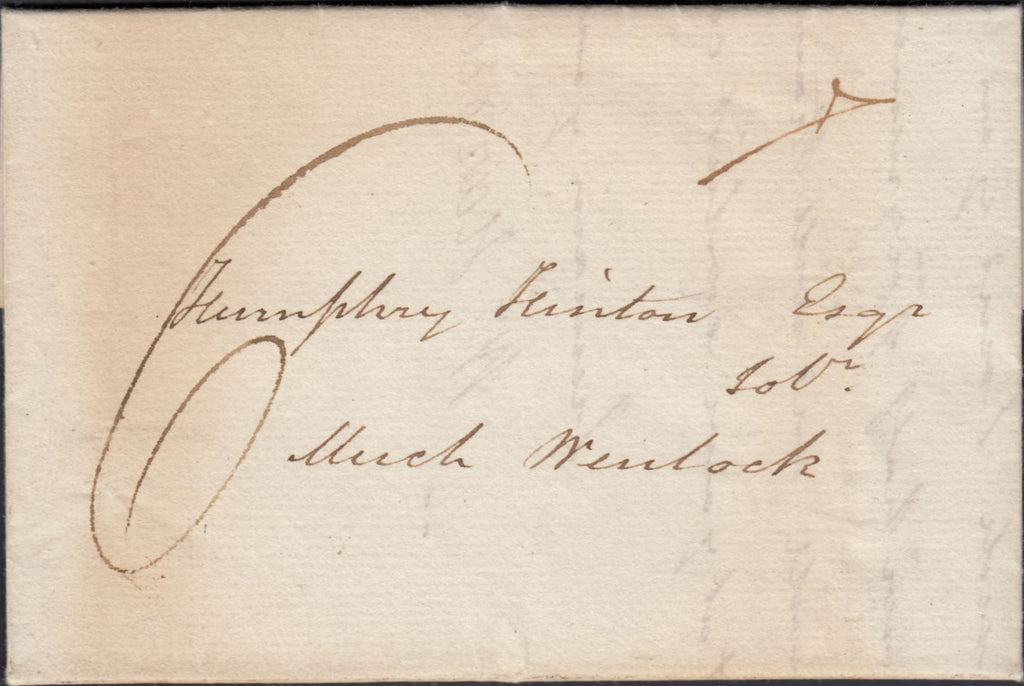 Humphrey Hinton Esqr
Solr.
Much Wenlock
6